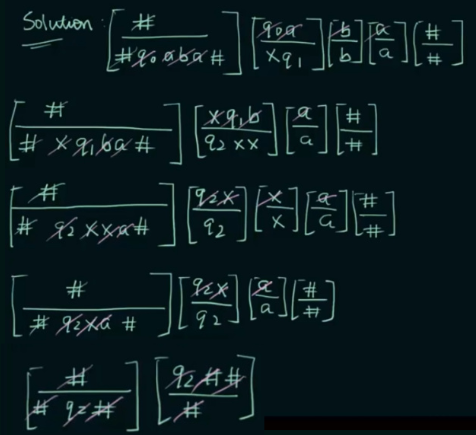 Solution: [#/#q₀aba#] [q₀a/xq₁] [b/b] [a/a] [#/#]
[#/#xq₁ba#] [xq₁b/q₂xx] [a/a] [#/#]
[#/#q₂xxa#] [q₂x/q₂] [x/x] [a/a] [#/#]
[#/#q₂xa#] [q₂x/q₂] [a/a] [#/#]
[#/#q₂#] [q₂##/#]